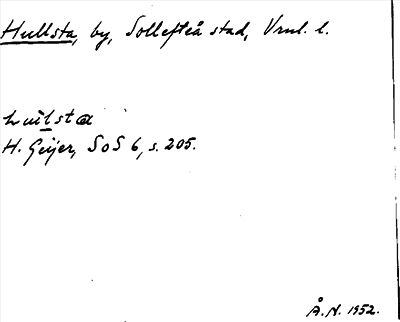 Hullsta, by, Sollefteå stad, Vrml. l.
H. Geijer, SoS 6, s. 205.
Å. N. 1952.